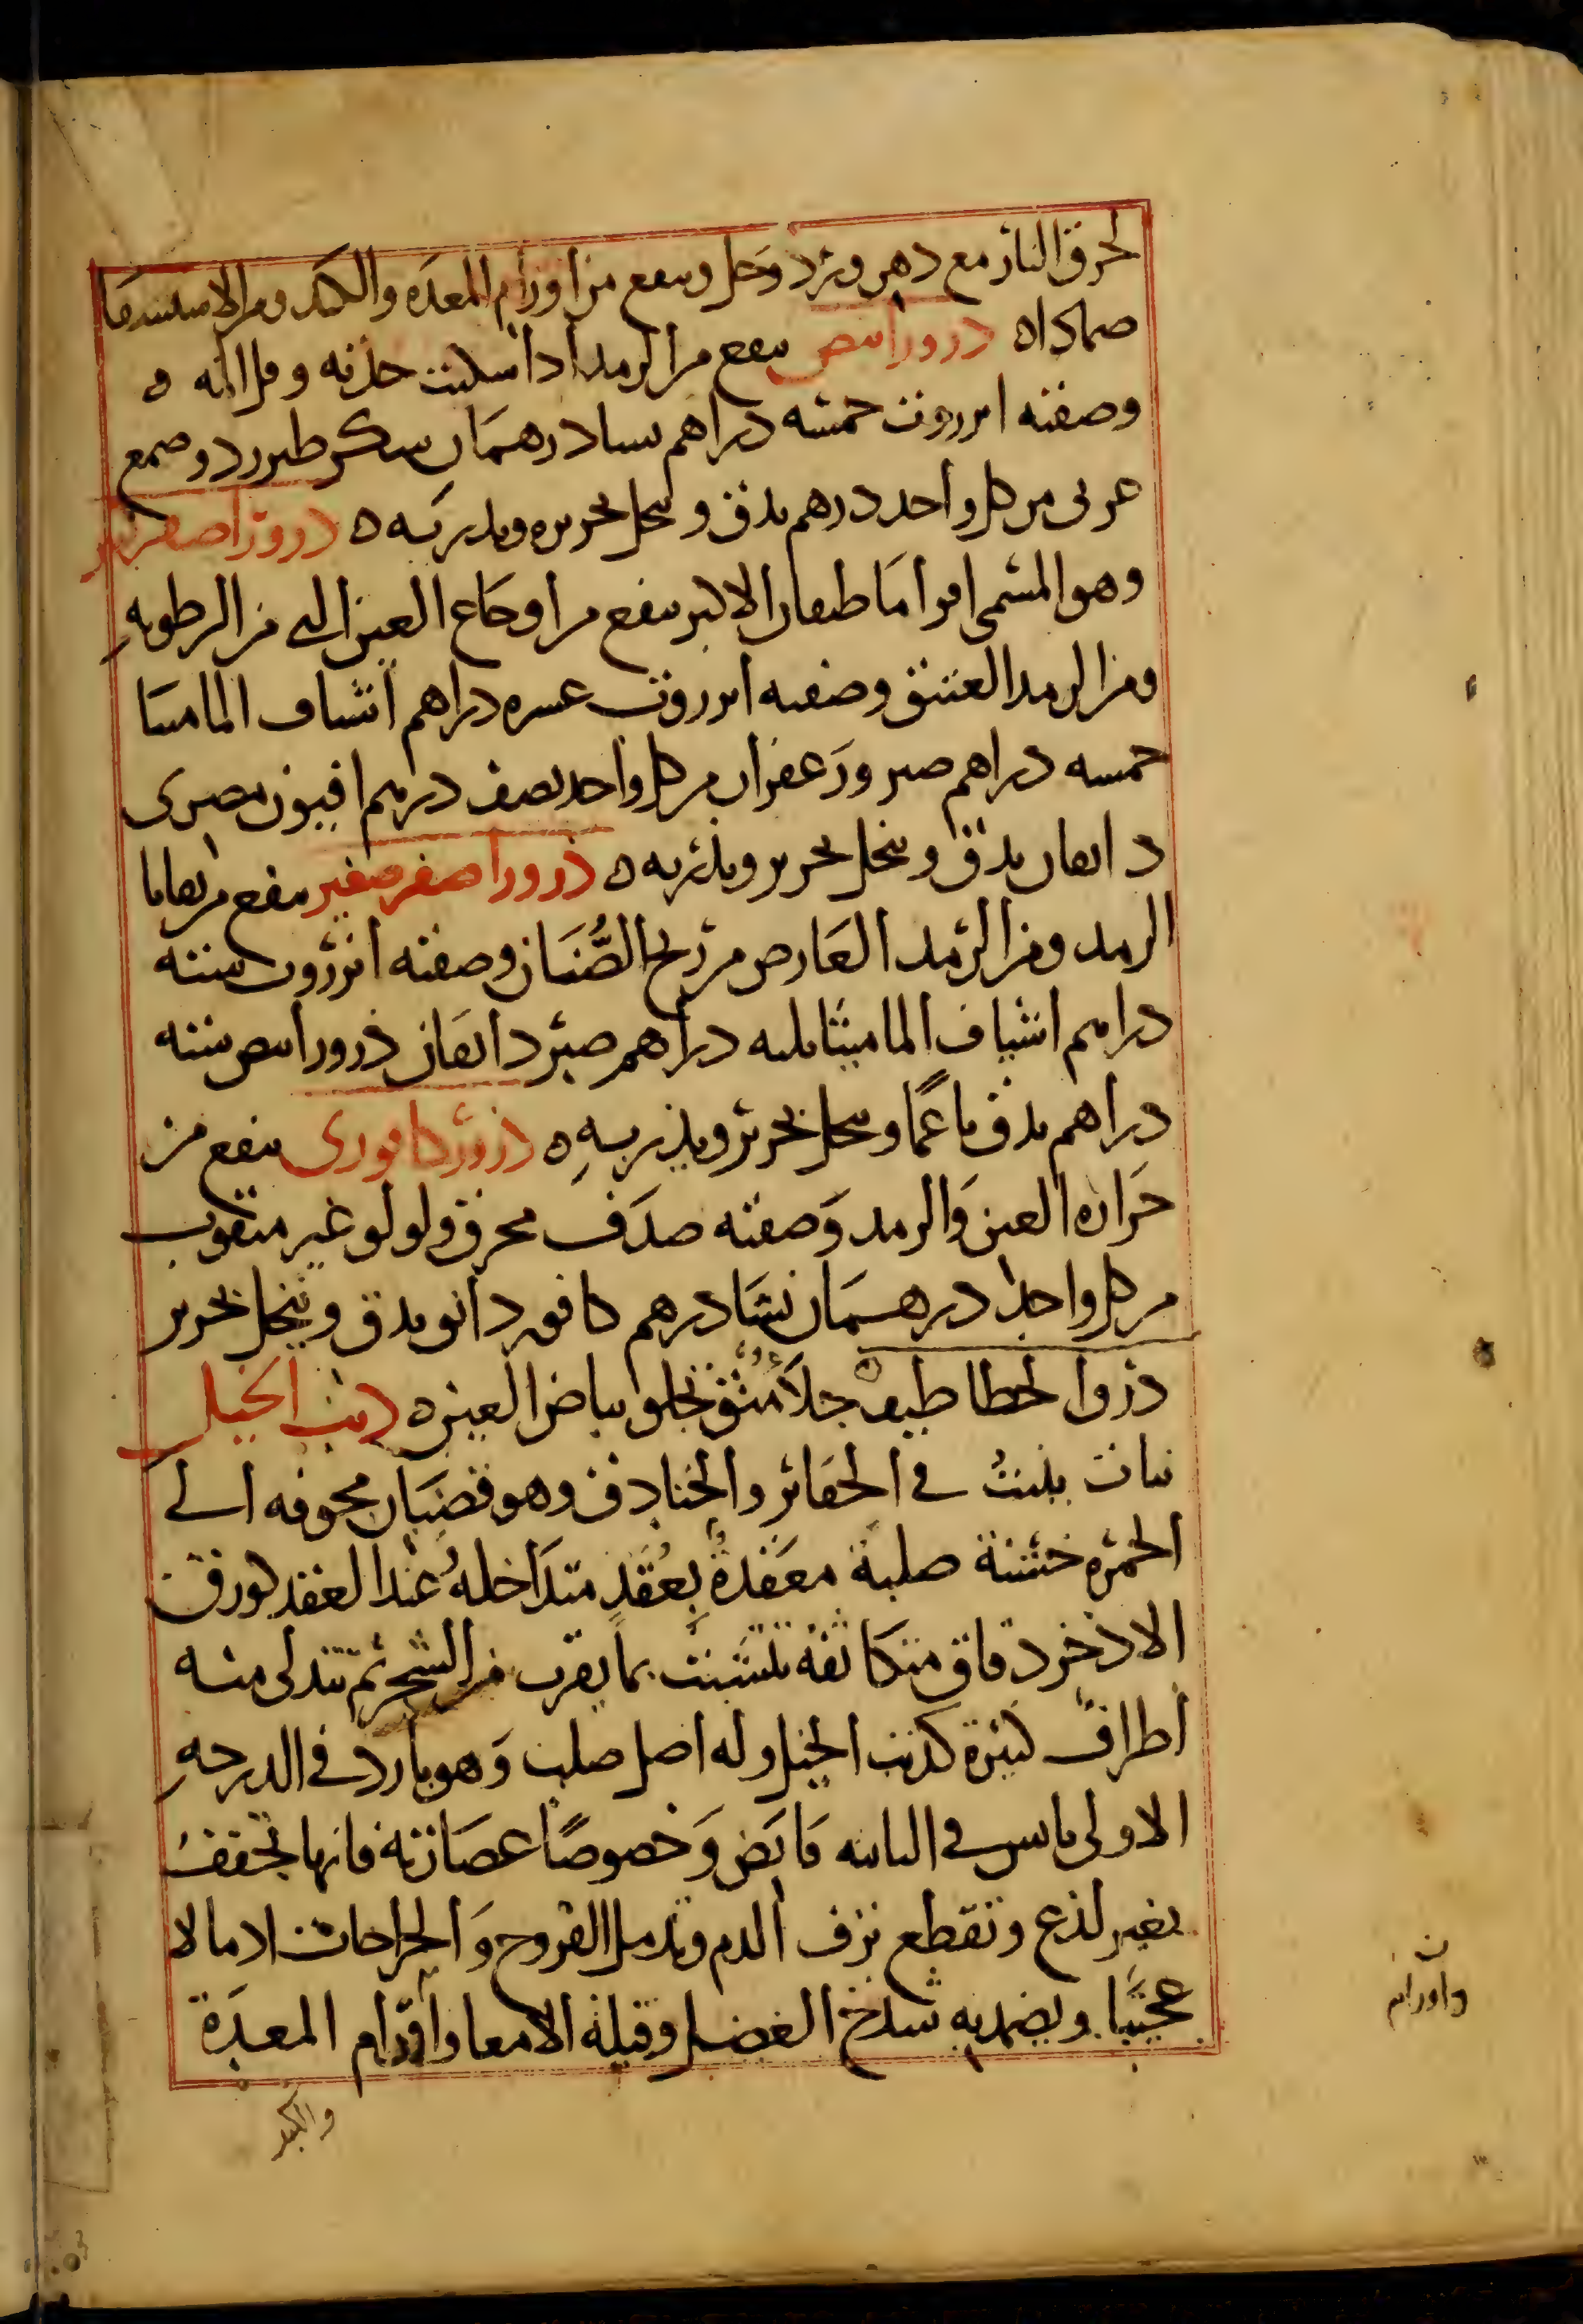 لحرق النار مع دهن ورد وخل وينفع من اورام المعدة والكبد ومن الاستسقا
ضمادا ه ذرور ابيض ينفع من الرمد اذا سكنت حدته وقل المه ه
وصفته انزروت خمسه دراهم نشا درهمان سكر طبرزد وصمغ
عربى من كل واحد درهم يدق وينخل بحريره ويذر به ه ذرور اصفر كبير
وهو المسمى اطفان الاكبر ينفع من اوجاع العين التى من الرطوبه
ومن الرمد العتيق وصفته انزروت عشره دراهم اشياف الماميثا
خمسه دراهم صبر وزعفران من كل واحد نصف درهم افيون مصرى
دانقان يدق وينخل بحرير ويذر به ه ذرور اصفر صغير ينفع من بقايا
الرمد ومن الرمد العارض من ريح الصُّنان وصفته انزروت ستة
دراهم اشياف الماميثا ثلثه دراهم صبر دانقان ذرور ابيض ستة
دراهم يدق ناعمًا وينخل بحرير ويذر به ه ذرور كافورى ينفع من
حرارة العين والرمد وصفته صدف محرق ولولو غير مثقوب
من كل واحد درهمان نشا درهم كافور دانق يدق وينخل بحرير
ذرو الخطاطيف جلاَّء يجلو بياض العين ه ذنب الخيل
نبات ينبت في الحفائر والخنادق وهو قضبان مجوفه الى
الحمره خشنة صلبة معقدة بعُقَد متداخله عند العقد كورق
الاذخر دقاق متكاثفة يتشبث بما يقرب من الشجر ثم تتدلى منه
أطراف كثيرة كذنب الخيل وله اصل صلب وهو بارد في الدرجه
الاولى يابس في الثانيه قابض وخصوصًا عصارته فانها تجفف
بغير لذع وتقطع نزف الدم وتدمل القروح والجراحات ادمالا
عجيبًا ويضمد به شدخ العضل وقيلة الامعا واورام المعدة
والكبد
ن
واورام